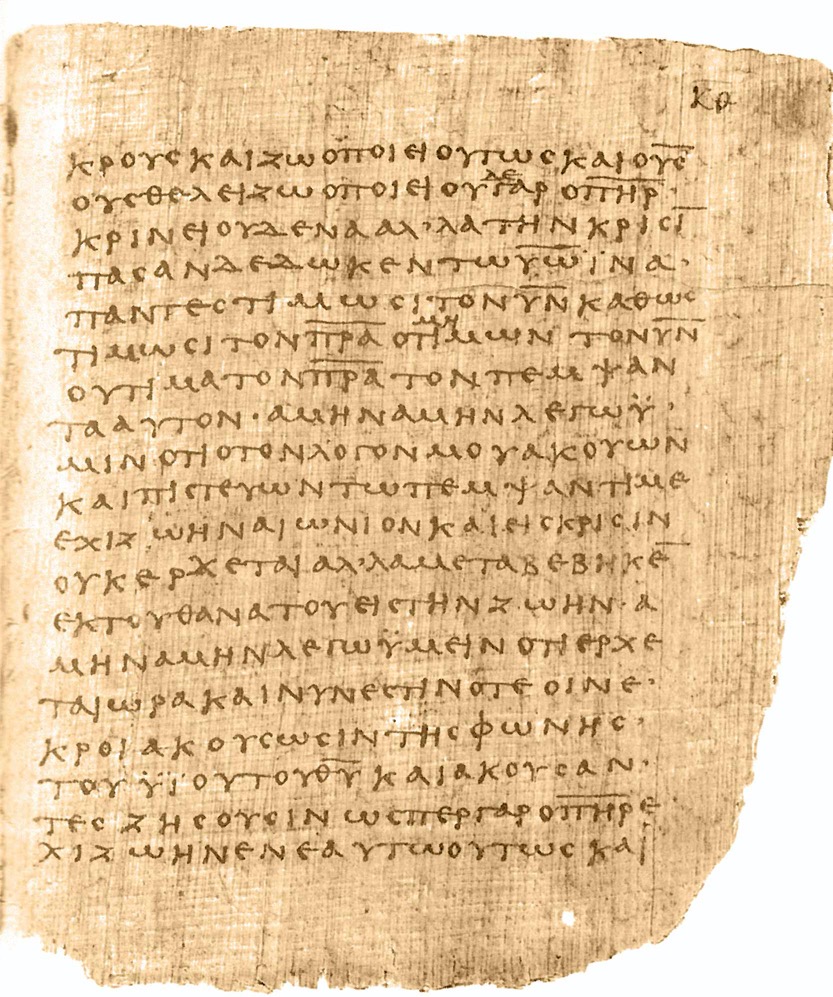 ΚΘ
ΚΡΟΥϹΚΑΙΖΩΟΠΟΙΕΙΟΥΤΩϹΚΑΙΟΥ̅Ϲ̅
ΔΕ
ΟΥϹΘΕΛΕΙΖΩΟΠΟΙΕΙΟΥΓΑΡΟΠ̅Η̅Ρ̅·
ΚΡΙΝΕΙΟΥΔΕΝΑΑΛ’ΛΑΤΗΝΚΡΙϹΙ̅
ΠΑϹΑΝΔΕΔΩΚΕΝΤΩΥ̅Ω̅ΙΝΑ·
ΠΑΝΤΕϹΤΙΜΩϹΙΤΟΝΥ̅Ν̅ΚΑΘΩϹ
ΜΗ
ΤΙΜΩϹΙΤΟΝΠ̅Ρ̅Α̅ΟΤΙΜΩΝΤΟΝΥ̅Ν̅
ΟΥΤΙΜΑΤΟΝΠ̅Ρ̅Α̅ΤΟΝΠΕΜΨΑΝ
ΤΑΑΥΤΟΝ·ΑΜΗΝΑΜΗΝΛΕΓΩΫ·
ΜΙΝΟΤΙΟΤΟΝΛΟΓΟΝΜΟΥΑΚΟΥΩΝ
ΚΑΙΠΙϹΤΕΥΩΝΤΩΠΕΜΨΑΝΤΙΜΕ
ΕΧΙΖΩΗΝΑΙΩΝΙΟΝΚΑΙΕΙϹΚΡΙϹΙΝ
ΟΥΚΕΡΧΕΤΑΙΑΛ’ΛΑΜΕΤΑΒΕΒΗΚΕ̅
ΕΚΤΟΥΘΑΝΑΤΟΥΕΙϹΤΗΝΖΩΗΝ·Α
ΜΗΝΑΜΗΝΛΕΓΩΫΜΕΙΝΟΤΙΕΡΧΕ
ΤΑΙΩΡΑΚΑΙΝΥΝΕϹΤΙΝΟΤΕΟΙΝΕ·
ΚΡΟΙΑΚΟΥϹΩϹΙΝΤΗϹΦΩΝΗϹ·
ΤΟΥΫΙΟΥΤΟΥΘ̅Υ̅ΚΑΙΑΚΟΥϹΑΝ·
ΤΕϹΖΗϹΟΥϹΙΝΩϹΠΕΡΓΑΡΟΠ̅Η̅Ρ̅Ε
ΧΙΖΩΗΝΕΝΕΑΥΤΩΟΥΤΩϹΚΑΙ